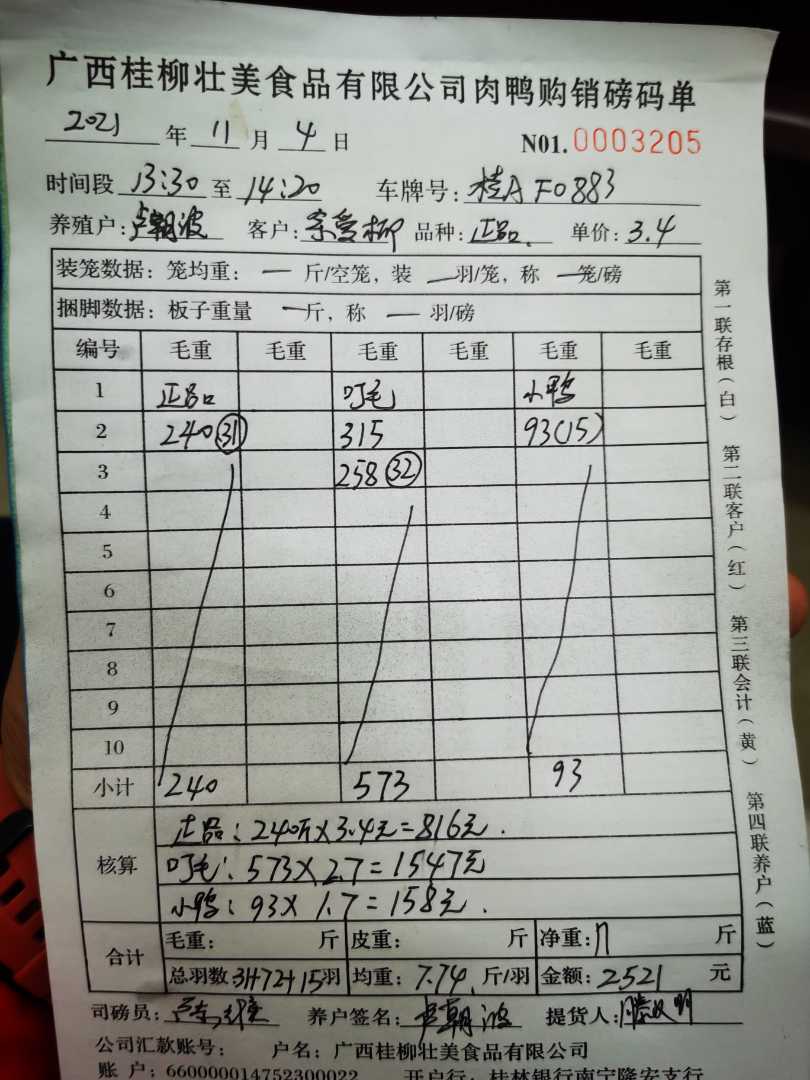 广西桂柳壮美食品有限公司肉鸭购销磅码单
2021 年 11 月 4 日 N01.0003205
时间段 13:30 至 14:20 车牌号: 桂A F0883
养殖户: 卢朝波 客户: 亲爱柳 品种: 正品. 单价: 3.4
装笼数据: 笼均重: 一 斤/空笼, 装 一 羽/笼, 称 一 笼/磅
捆脚数据: 板子重量 一 斤, 称 一 羽/磅
编号 毛重 毛重 毛重 毛重 毛重 毛重
1 正品 叮毛 小鸭
2 240(31) 315 93(15)
3 258(32)
4
5
6
7
8
9
10
小计 240 573 93
核算 正品: 240斤×3.4元=816元.
叮毛: 573×2.7=1547元
小鸭: 93×1.7=158元.
合计 毛重: 斤 皮重: 斤 净重: 斤
总羽数 31+72+15羽 均重: 7.74 斤/羽 金额: 2521 元
司磅员: 养户签名: 卢朝波 提货人:
公司汇款账号: 户名: 广西桂柳壮美食品有限公司
账 户: 660000014752300022 开户行: 桂林银行南宁隆安支行
第一联存根(白) 第二联客户(红) 第三联会计(黄) 第四联养户(蓝)